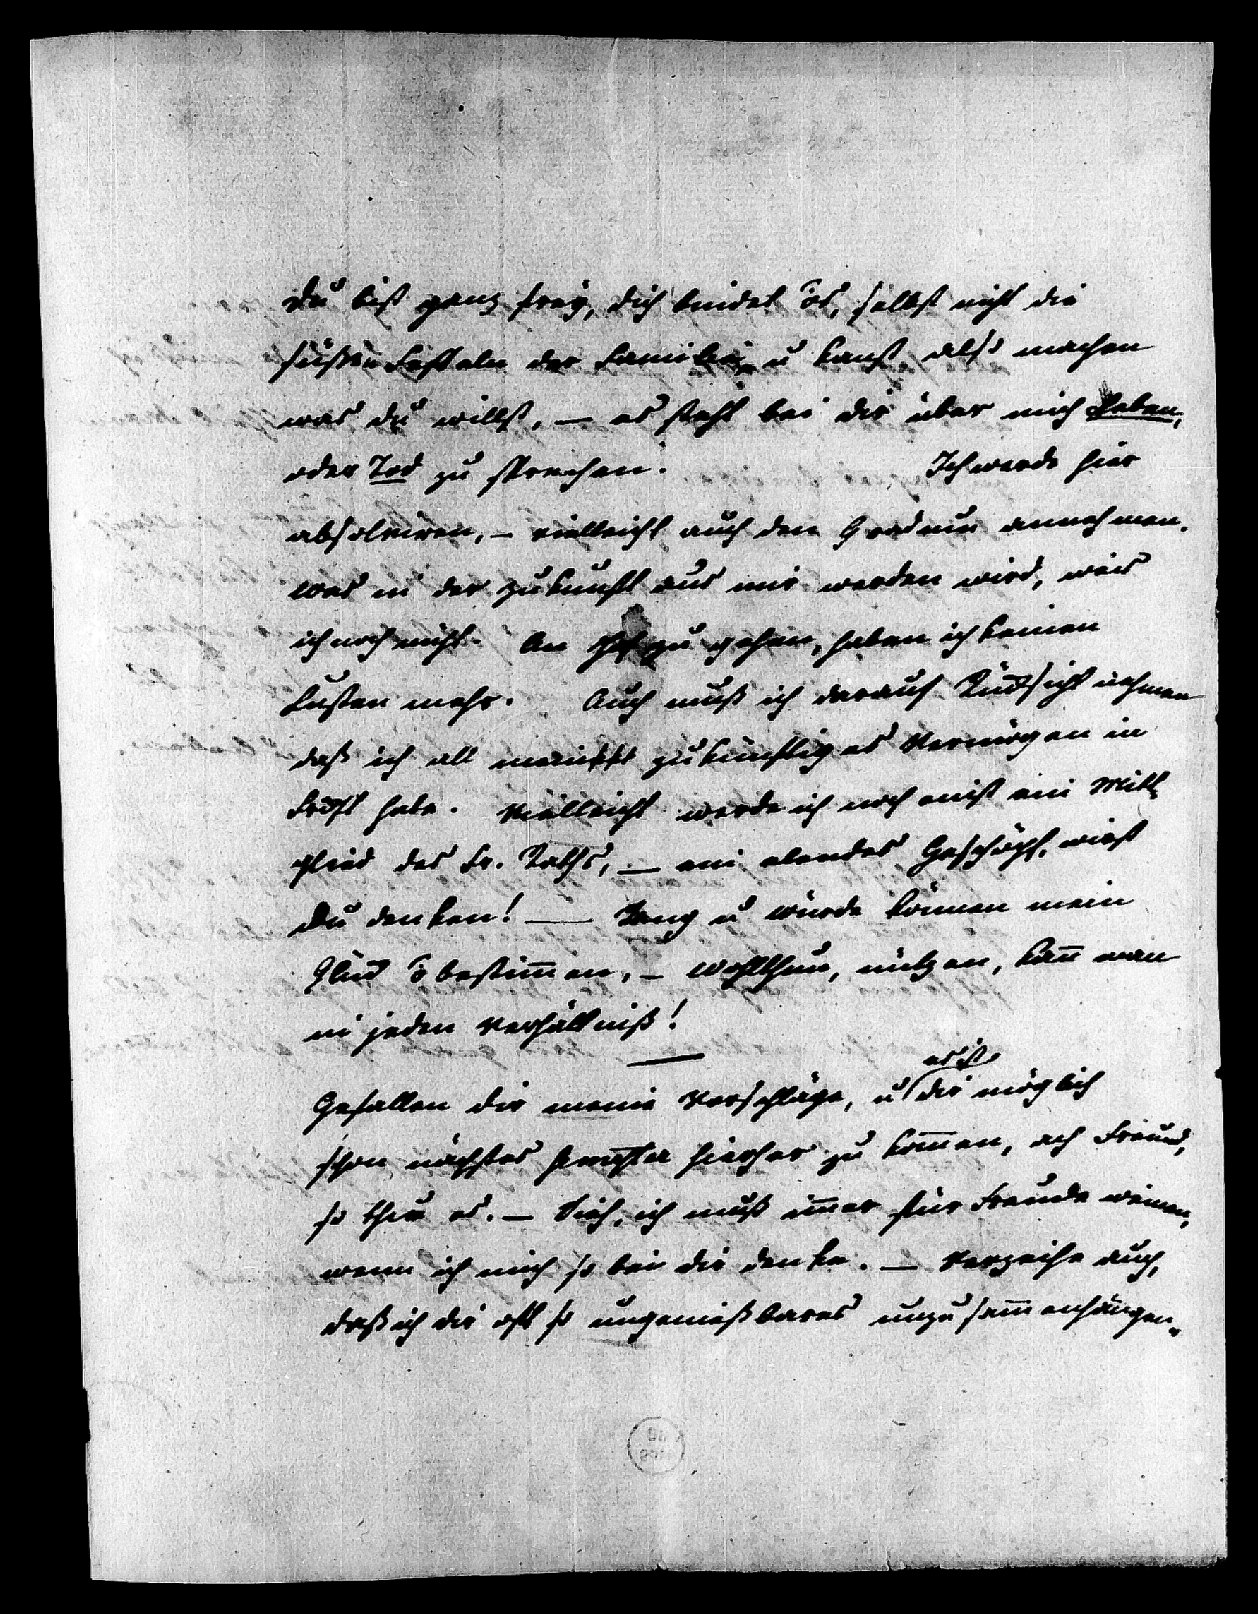 Du bist ganz frey, dich bindet es, selbst nicht die
süßen Fesseln der Familie, u kanst also machen
was du willst, — es steht bei dir über mich Leben,
oder Tod zu sprechen. Ich werde hier
absolviren, – vielleicht auch den Gradum annehmen.
Was in der Zukunft aus mir werden wird, weis
ich noch nicht. An Hof zu gehen, haben ich keinen
Lusten mehr. Auch muß ich darauf Rücksicht nehmen
daß ich all mein zukünftiges Vermögen in
habe. Vielleicht werde ich noch einst ein Mitt
glied des Fr. Raths, — ein elendes Geschöpf, wirst
Du denken! — Rang u würde können mein
Glück bestim̅en, – wohlthun, nützen, kan̅ man
in jeden Verhältniß!
Gefallen dir meine Vorschläge, u es ist dir möglich
schon nächstes hierher zu kom̅en, ach Freund,
so thue es. — Sieh, ich muß im̅er für Freude weinen,
wenn ich mich so bei dir denke. — Verzeihe auch,
daß ich dir oft so ungenießbares unzusam̅enhängen„